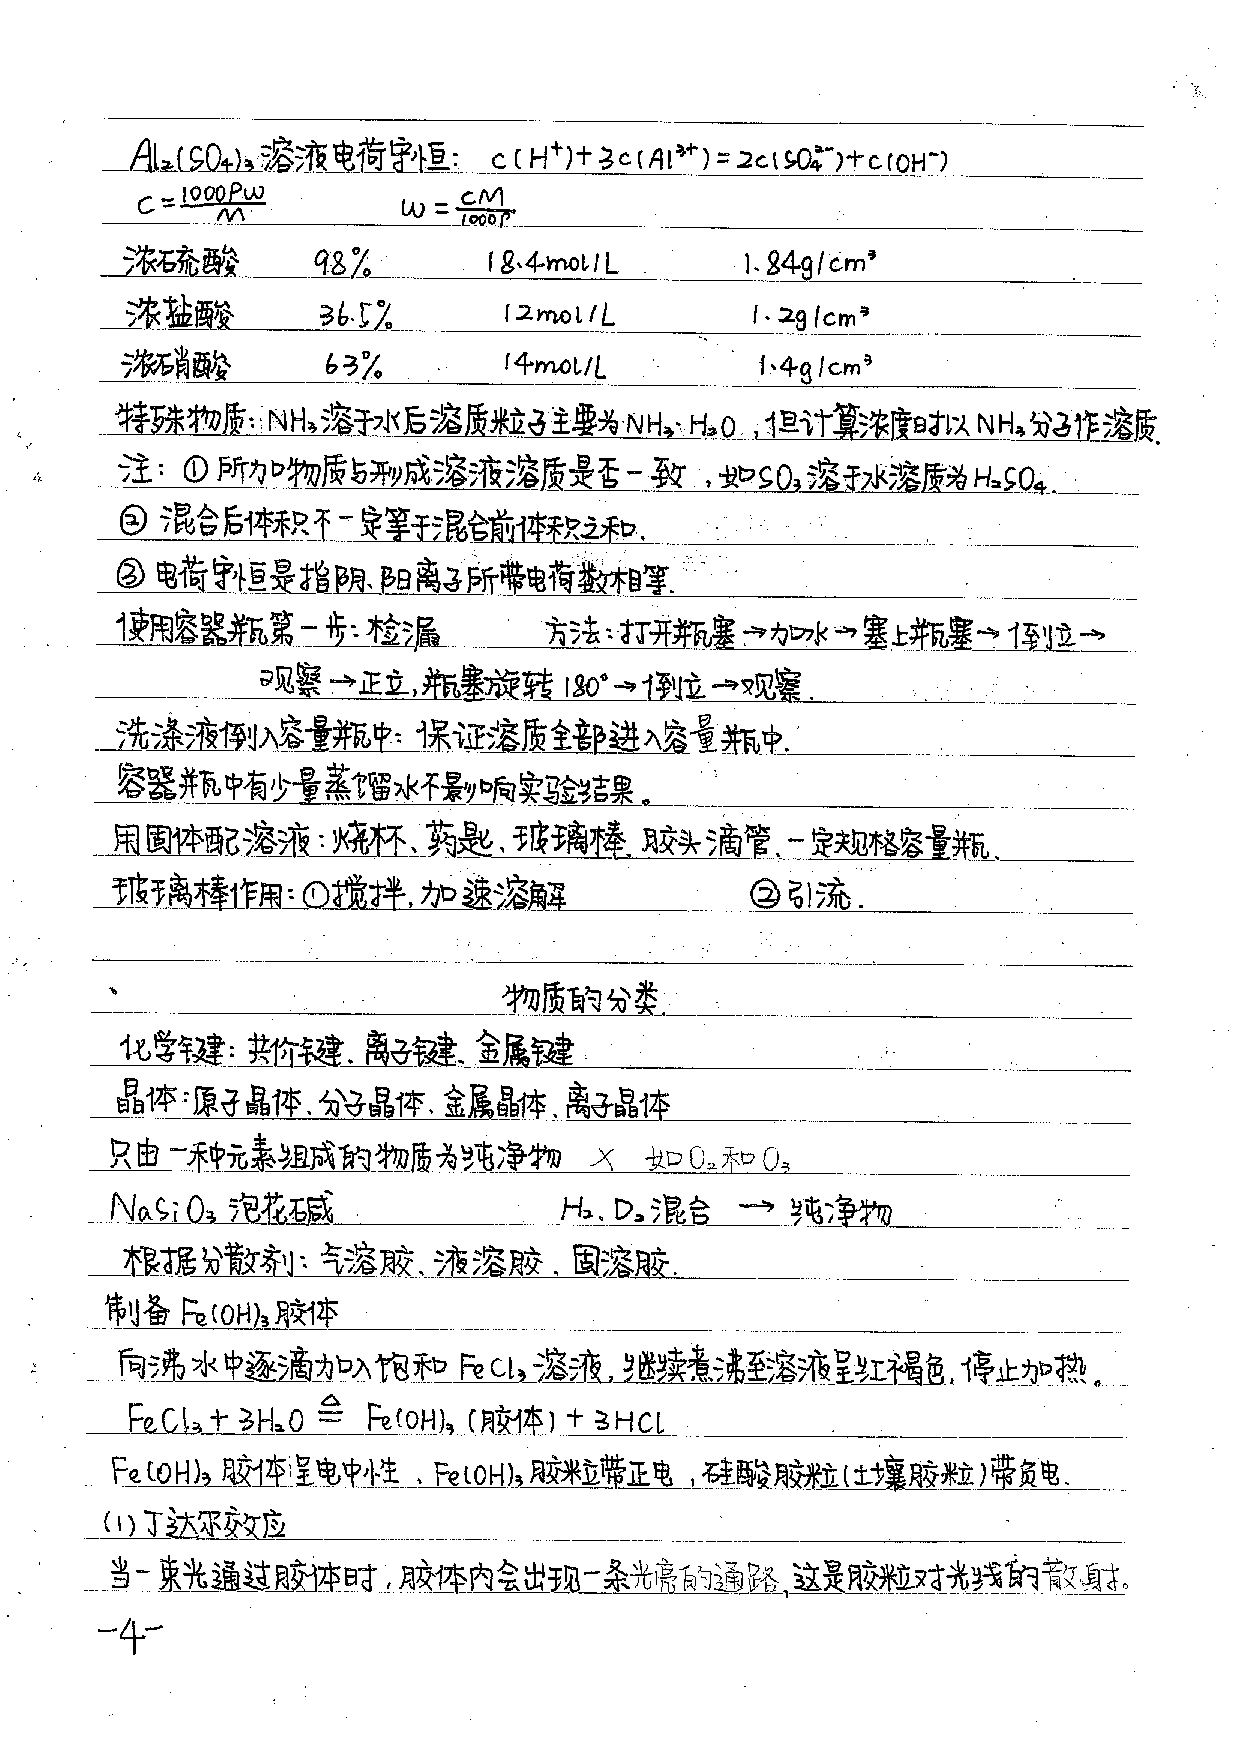 Al₂(SO₄)₃溶液电荷守恒: c(H⁺)+3c(Al³⁺)=2c(SO₄²⁻)+c(OH⁻)
c=1000ρw/M w=cM/1000ρ.
浓硫酸 98% 18.4mol/L 1.84g/cm³
浓盐酸 36.5% 12mol/L 1.2g/cm³
浓硝酸 63% 14mol/L 1.4g/cm³
特殊物质:NH₃溶于水后溶质粒子主要为NH₃·H₂O,但计算浓度时以NH₃分子作溶质.
注:①所加物质与形成溶液溶质是否一致,如SO₃溶于水溶质为H₂SO₄.
②混合后体积不一定等于混合前体积之和.
③电荷守恒是指阴、阳离子所带电荷数相等.
使用容器瓶第一步:检漏 方法:打开瓶塞→加水→塞上瓶塞→倒立→
观察→正立,瓶塞旋转180°→倒立→观察.
洗涤液倒入容量瓶中:保证溶质全部进入容量瓶中.
容器瓶中有少量蒸馏水不影响实验结果。
用固体配溶液:烧杯、药匙、玻璃棒、胶头滴管、一定规格容量瓶.
玻璃棒作用:①搅拌,加速溶解 ②引流.
物质的分类.
化学键:共价键、离子键、金属键
晶体:原子晶体、分子晶体、金属晶体、离子晶体
只由一种元素组成的物质为纯净物 × 如O₂和O₃
NaSiO₃泡花碱 H₂、D₂混合 → 纯净物
根据分散剂:气溶胶、液溶胶、固溶胶.
制备Fe(OH)₃胶体
向沸水中逐滴加入饱和FeCl₃溶液,继续煮沸至溶液呈红褐色,停止加热。
FeCl₃+3H₂O ≜ Fe(OH)₃(胶体)+3HCl
Fe(OH)₃胶体呈电中性、Fe(OH)₃胶粒带正电,硅酸胶粒(土壤胶粒)带负电.
(1)丁达尔效应
当一束光通过胶体时,胶体内会出现一条光亮的通路,这是胶粒对光线的散射。
-4-